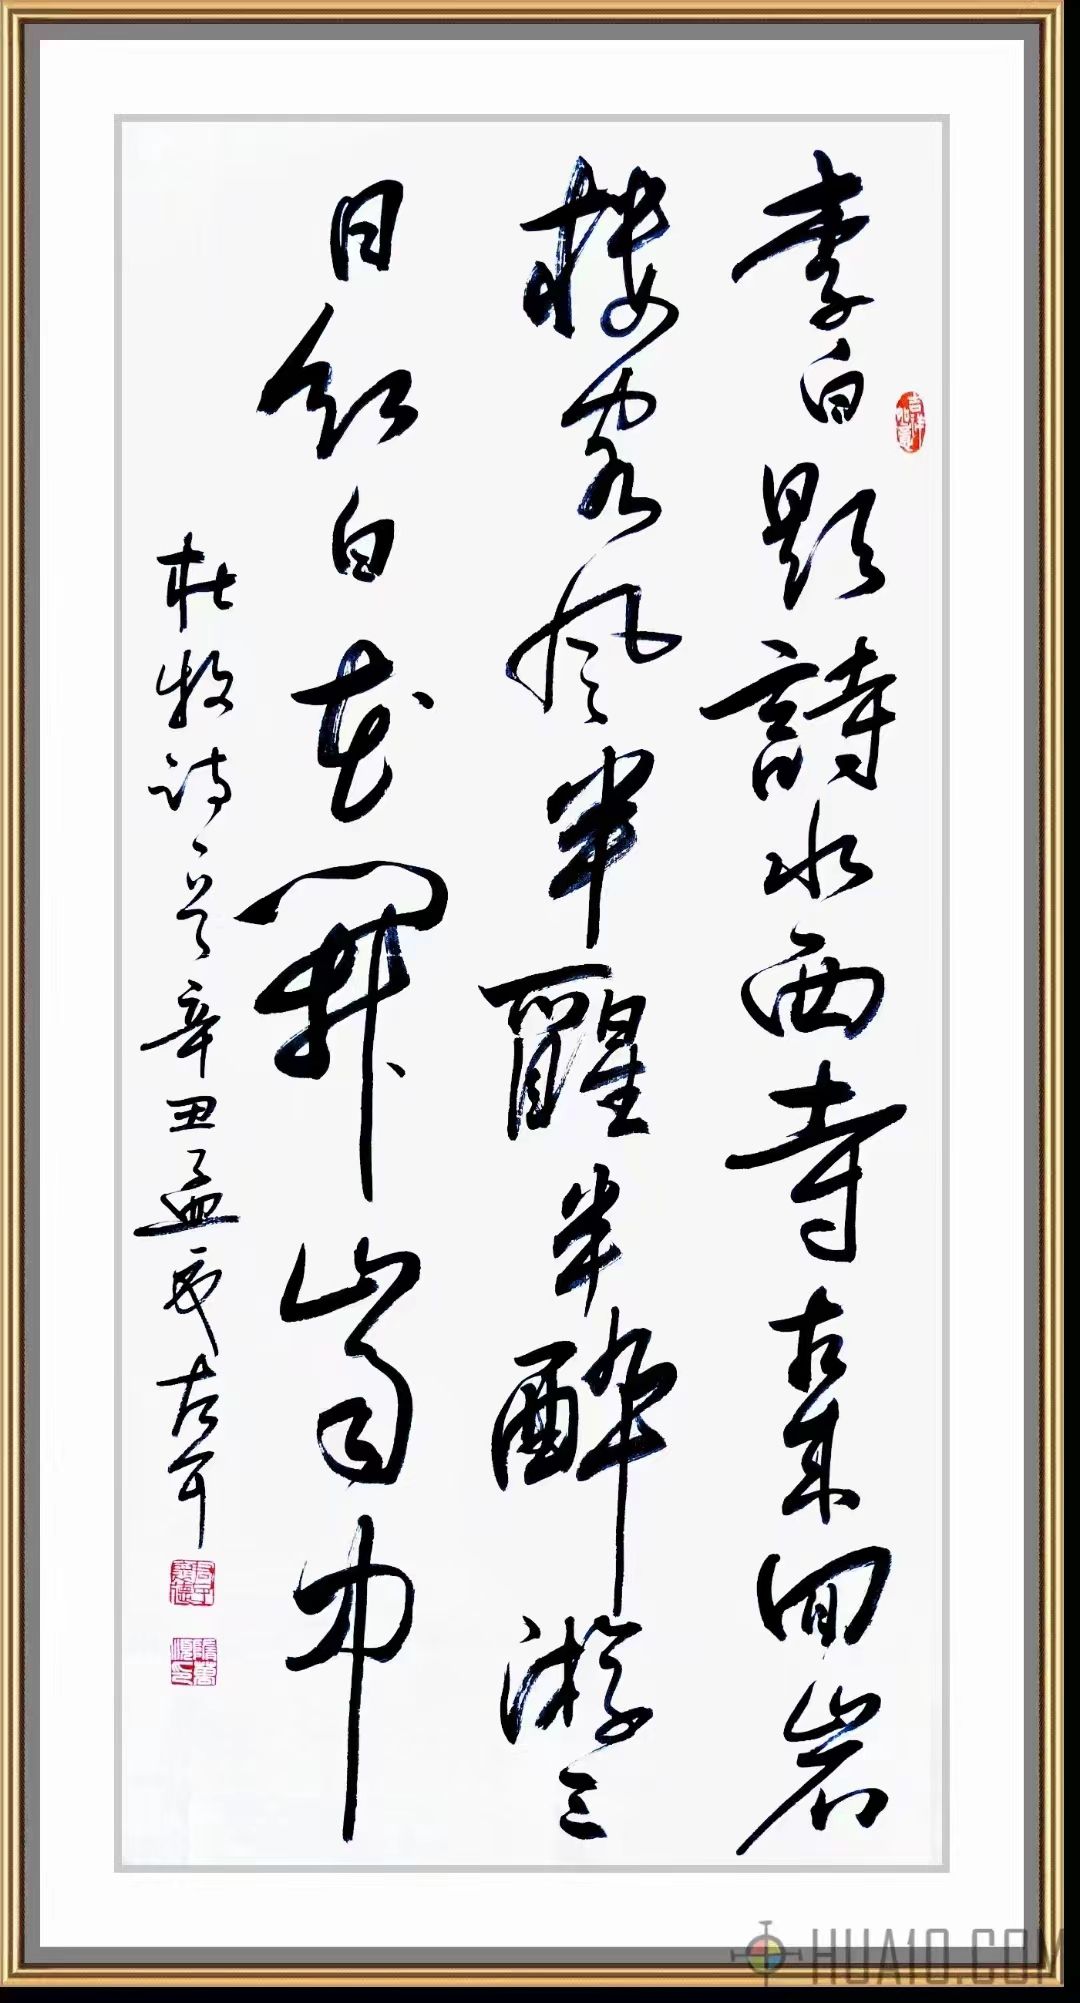 李白題詩水西寺古木回岩
樓閣風半醒半醉游三
日紅白花開山雨中
杜牧诗一首辛丑孟夏
吉祥如意
HUA10.COM